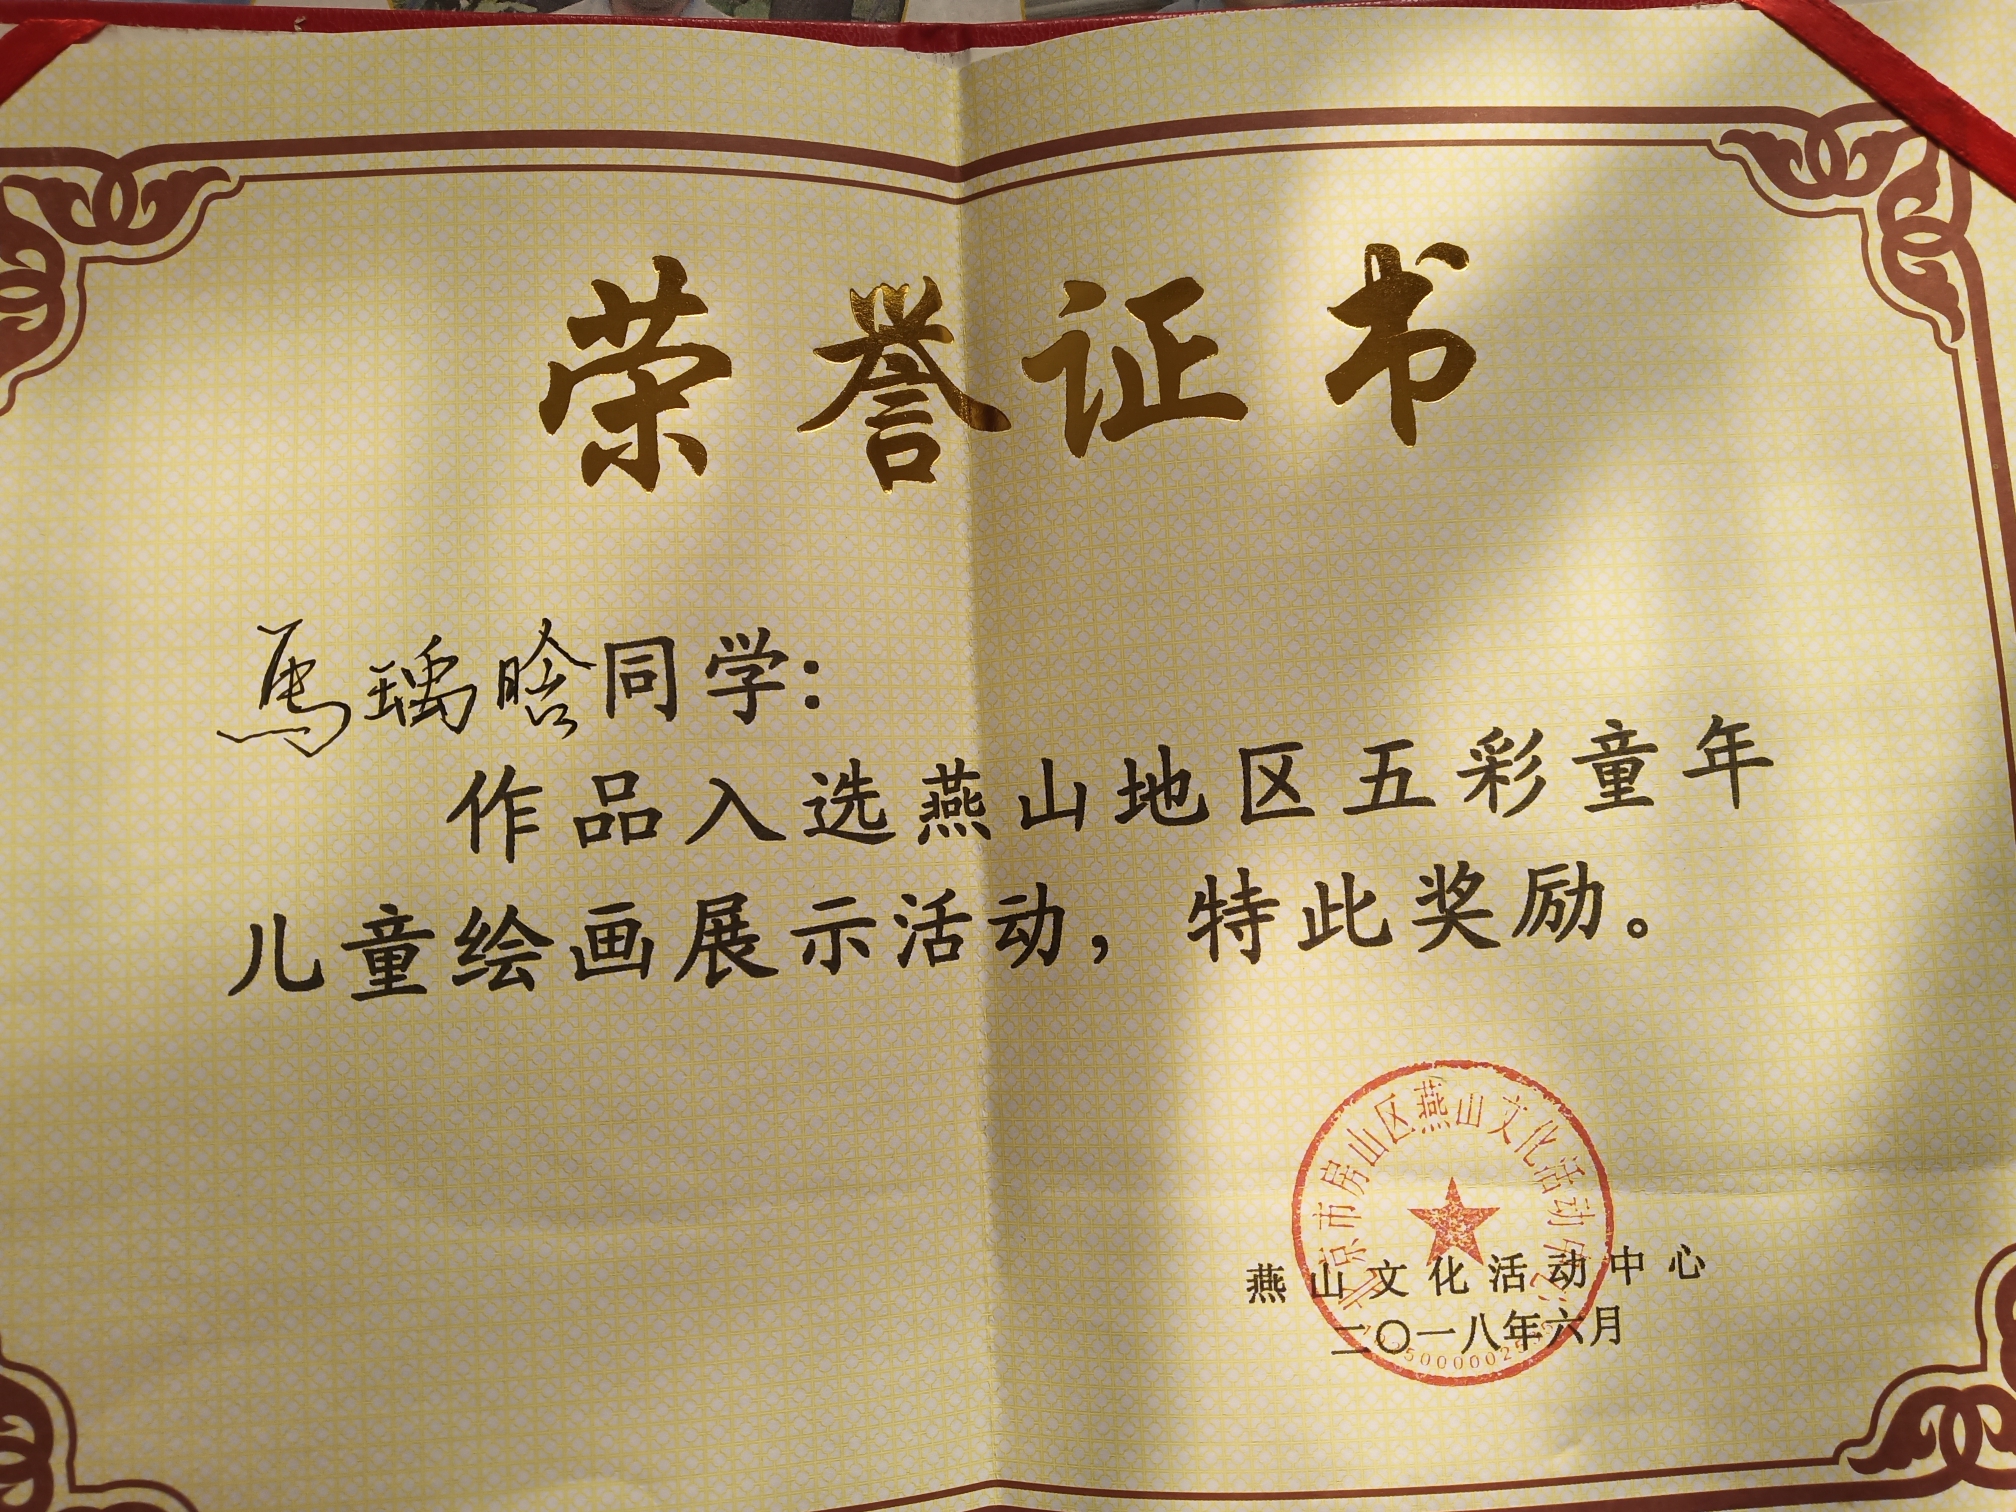 荣誉证书
马瑀晗同学：
作品入选燕山地区五彩童年
儿童绘画展示活动，特此奖励。
北京市房山区燕山文化活动中心
燕山文化活动中心
二〇一八年六月